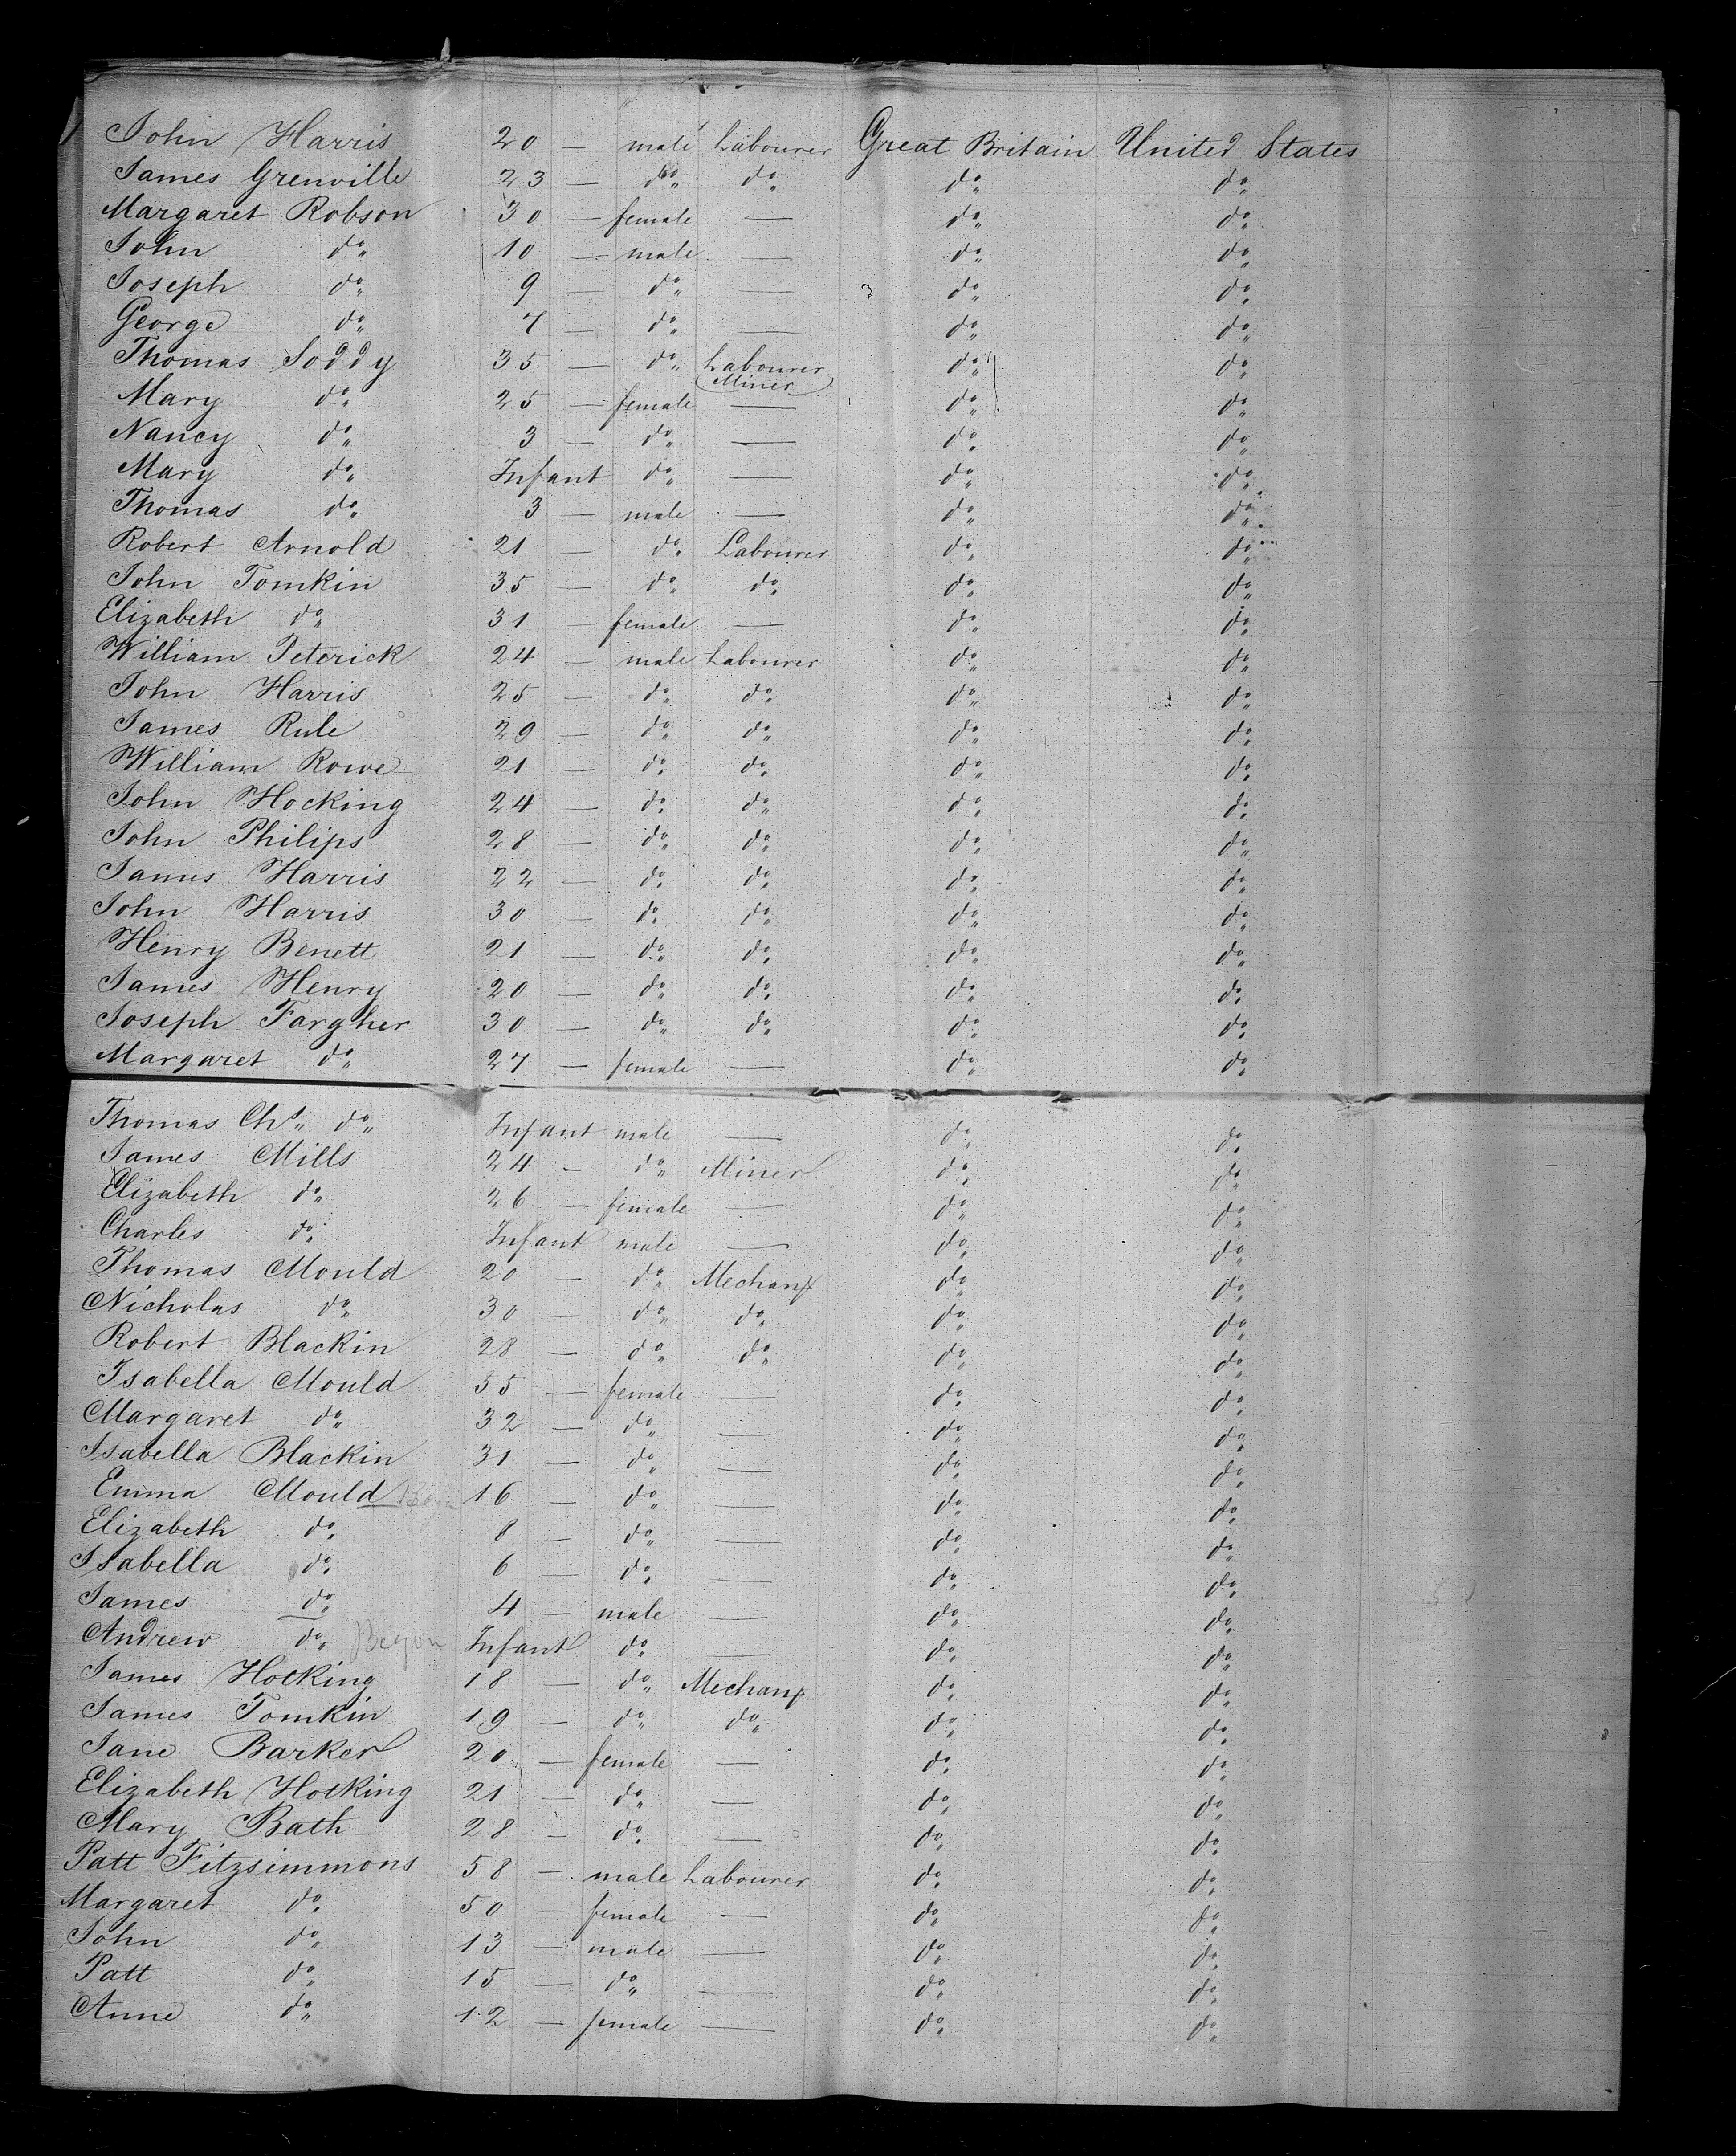 John Harris 20 — male Labourer Great Britain United States
James Grenville 23 — do do do do
Margaret Robson 30 — female — do do
John do 10 — male — do do
Joseph do 9 — do — do do
George do 7 — do — do do
Thomas Soddy 35 — do Labourer do do
(Miner)
Mary do 25 — female — do do
Nancy do 3 — do — do do
Mary do Infant do — do do
Thomas do 3 — male — do do
Robert Arnold 21 — do Labourer do do
John Tomkin 35 — do do do do
Elizabeth do 31 — female — do do
William Peterick 24 — male Labourer do do
John Harris 25 — do do do do
James Rule 29 — do do do do
William Rowe 21 — do do do do
John Hocking 24 — do do do do
John Philips 28 — do do do do
James Harris 22 — do do do do
John Harris 30 — do do do do
Henry Benett 21 — do do do do
James Henry 20 — do do do do
Joseph Fargher 30 — do do do do
Margaret do 27 — female — do do
Thomas Chs do Infant male — do do
James Mills 24 — do Miner do do
Elizabeth do 26 — female — do do
Charles do Infant male — do do
Thomas Mould 20 — do Mechanx do do
Nicholas do 30 — do do do do
Robert Blackin 28 — do do do do
Isabella Mould 35 — female — do do
Margaret do 32 — do — do do
Isabella Blackin 31 — do — do do
Emma Mould 16 — do — do do
Elizabeth do 8 — do — do do
Isabella do 6 — do — do do
James do 4 — male — do do
Andrew do Infant do — do do
James Hotking 18 — do Mechanx do do
James Tomkin 19 — do do do do
Jane Barker 20 — female — do do
Elizabeth Hotking 21 — do — do do
Mary Bath 28 — do — do do
Patt Fitzsimmons 58 — male Labourer do do
Margaret do 50 — female — do do
John do 13 — male — do do
Patt do 15 — do — do do
Anne do 12 — female — do do